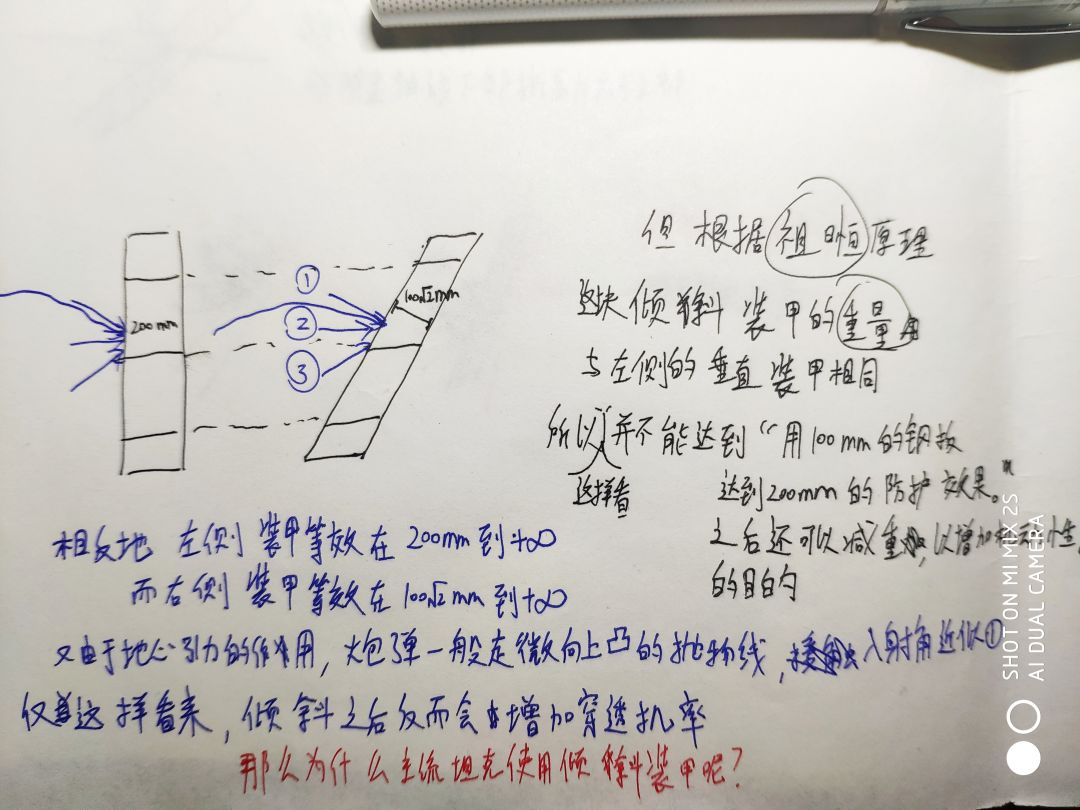 200mm
①
②
③
100√2mm
但根据祖暅原理
这块倾斜装甲的重量
与左侧的垂直装甲相同
所以并不能达到“用100mm的钢板
这样看
达到200mm的防护效果。”
之后还可以减重,以增加机动性
的目的
相反地 左侧装甲等效在200mm到+∞
而右侧装甲等效在100√2mm到+∞
又由于地心引力的作用,炮弹一般走微向上凸的抛物线,入射角近似①
仅这样看来,倾斜之后反而会增加穿透机率
那么为什么主流坦克使用倾斜装甲呢?
SHOT ON MI MIX 2S
AI DUAL CAMERA